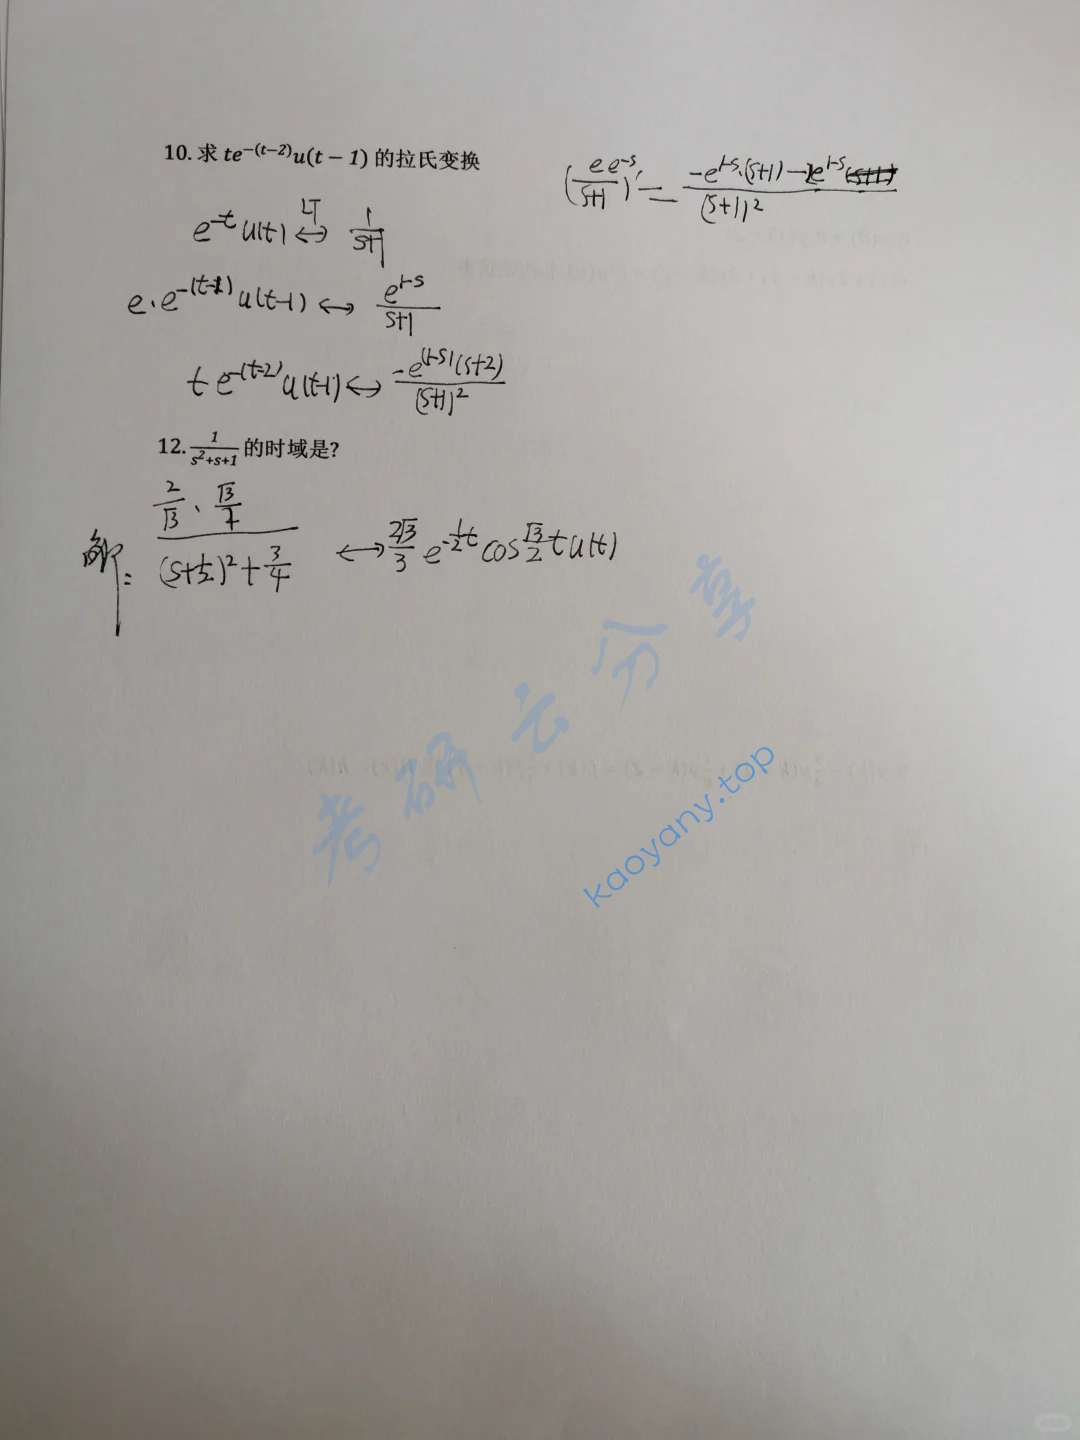 10. 求 te^{-(t-2)}u(t-1) 的拉氏变换
(\frac{e e^{-s}}{s+1})' = \frac{-e^{1-s}·(s+1)-e^{1-s}}{(s+1)^2}
e^{-t}u(t) \overset{LT}{↔} \frac{1}{s+1}
e·e^{-(t-1)}u(t-1) ↔ \frac{e^{1-s}}{s+1}
te^{-(t-2)}u(t-1) ↔ \frac{-e^{(1-s)}(s+2)}{(s+1)^2}
12. \frac{1}{s^2+s+1} 的时域是?
解: \frac{\frac{2}{\sqrt{3}}·\frac{\sqrt{3}}{}}{(s+\frac{1}{2})^2+\frac{3}{4}} ↔ \frac{2\sqrt{3}}{3}e^{-\frac{1}{2}t}cos\frac{\sqrt{3}}{2}tu(t)
考研云分享
kaoyany.top